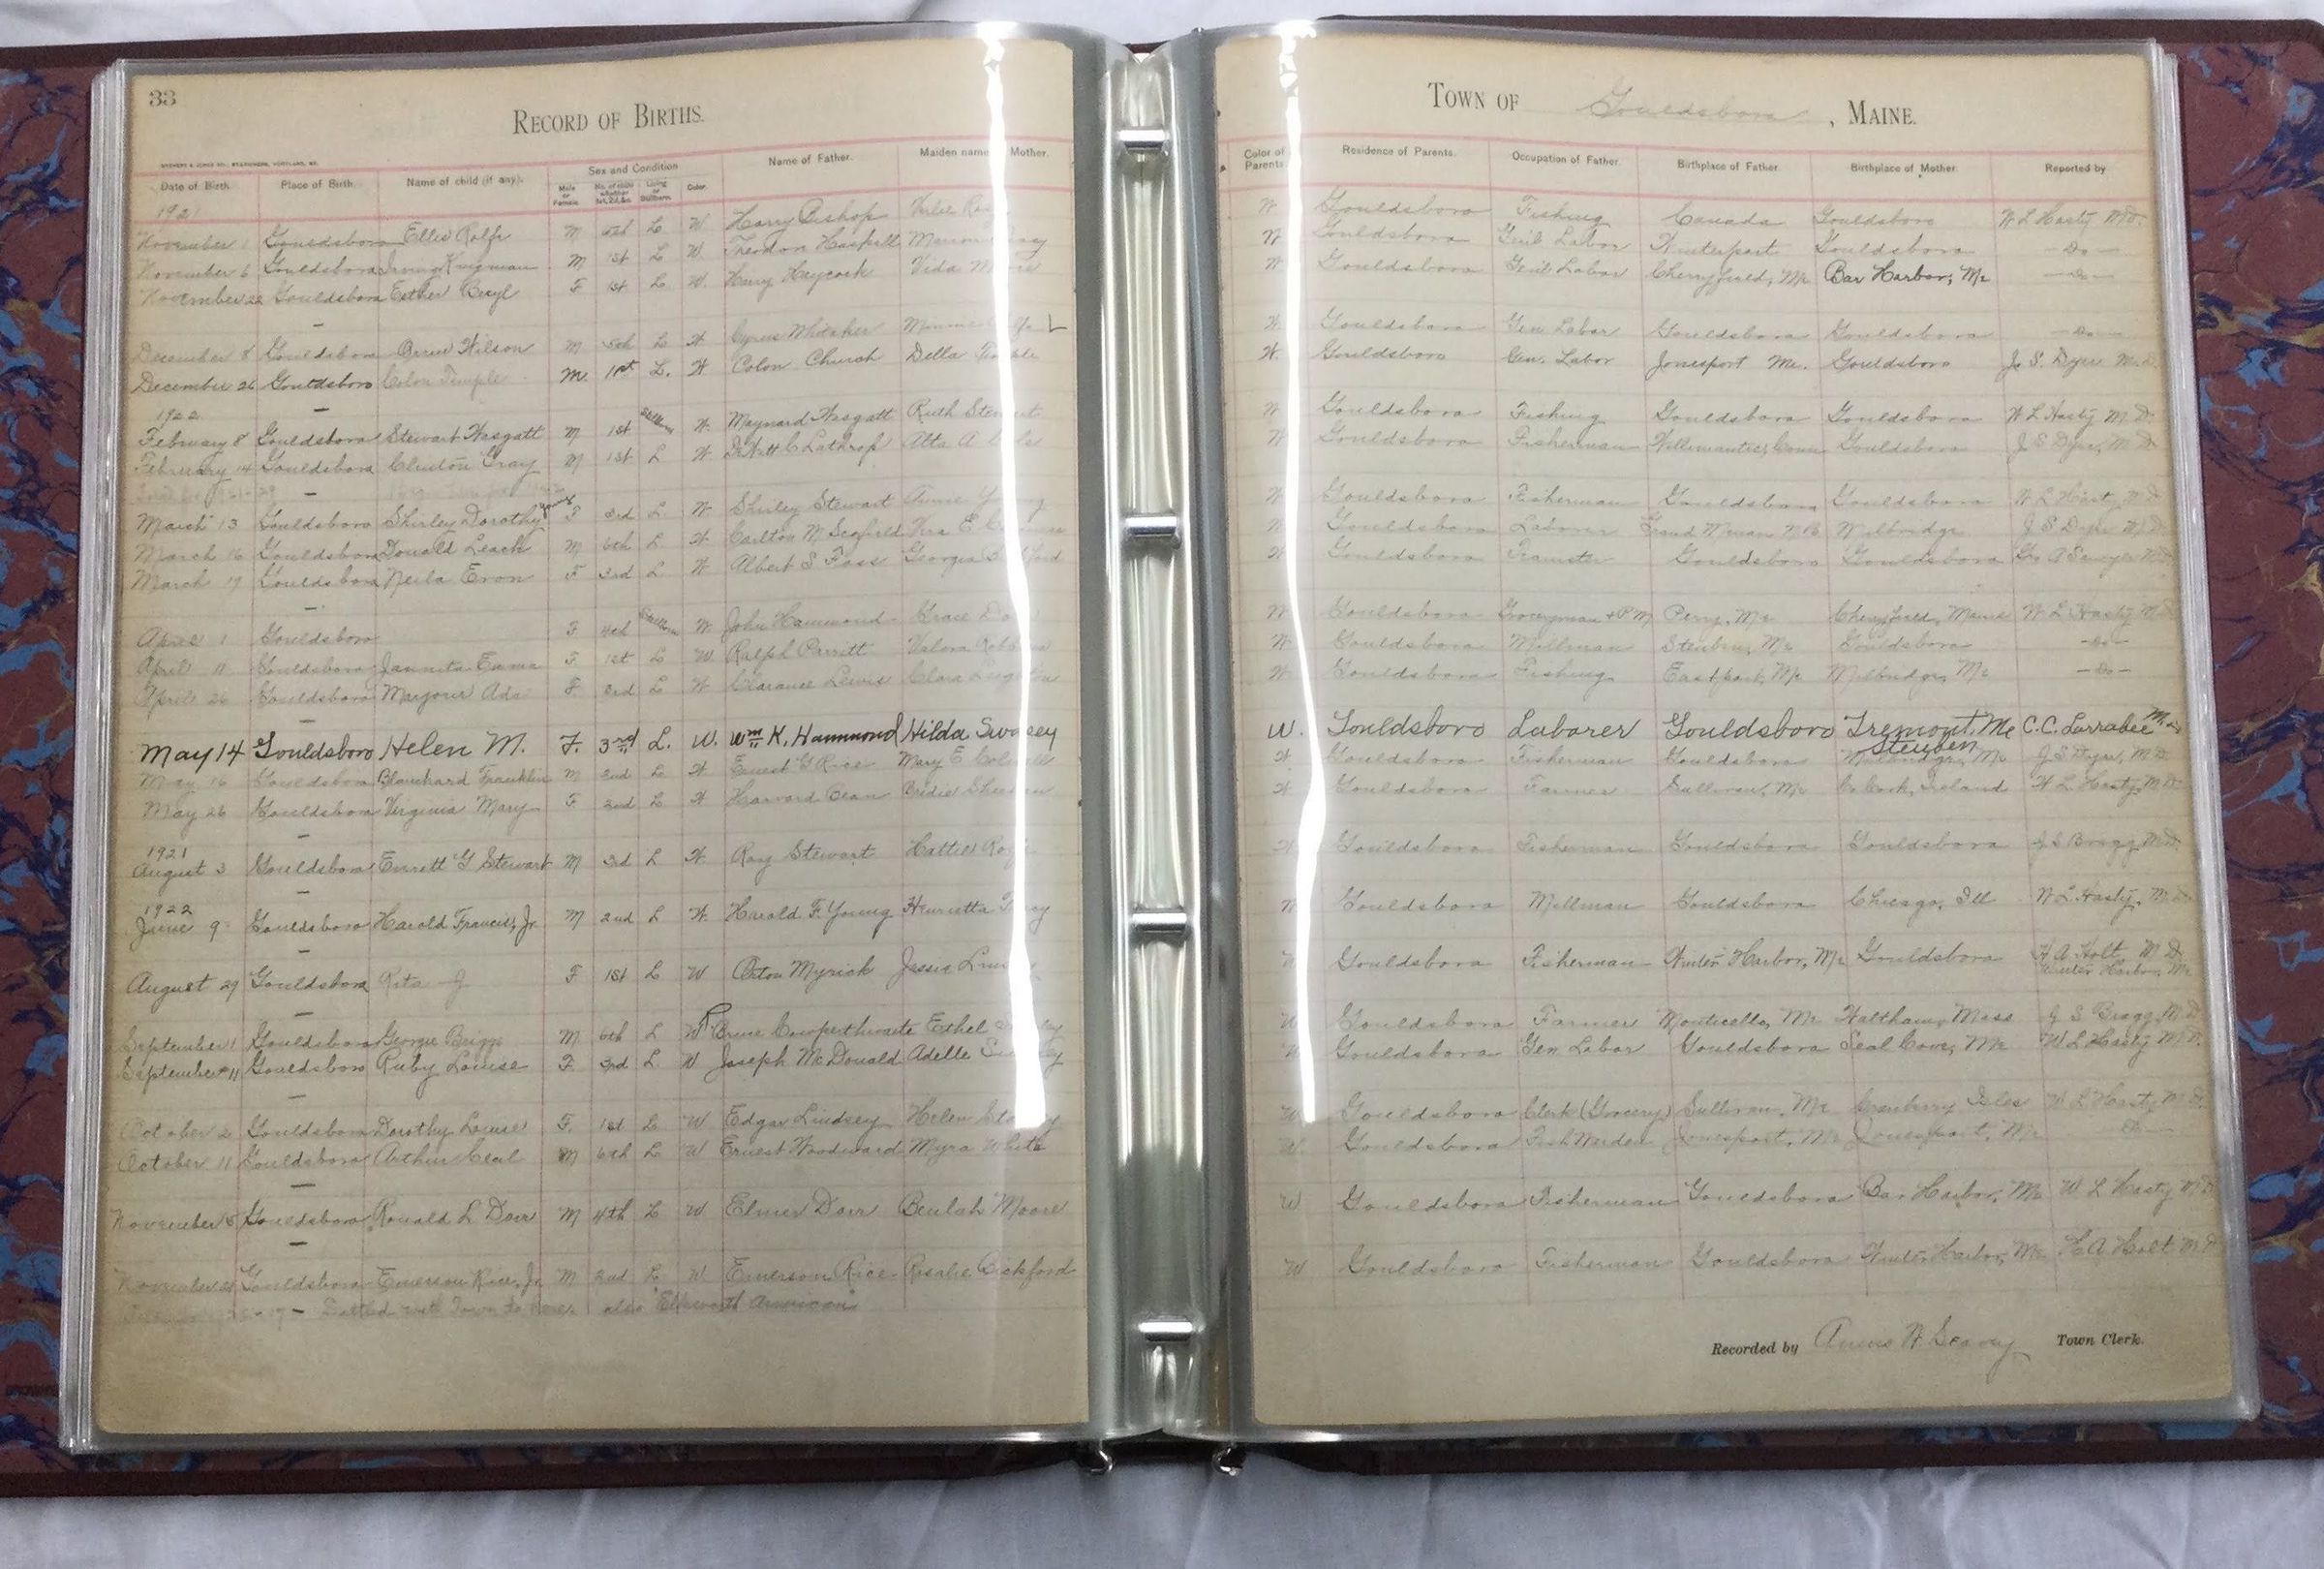 33
RECORD OF BIRTHS.
Date of Birth. Place of Birth. Name of child (if any). Sex and Condition Name of Father. Maiden name Mother.
Male or Female Living or Stillborn Color.
1921
November 1 Gouldsboro Ellis Rolfe M 5th L W Harry Bishop
November 6 Gouldsboro Irving Kingman M 1st L W. Haskell
November 22 Gouldsboro Esther Beryl F 1st L W. Harry Haycock Vida
December 8 Gouldsboro Orrin Wilson M 5th L W Cyrus Whitaker
December 26 Gouldsboro Colon Temple M. 1st L. W Colon Church Della
1922
February 8 Gouldsboro Stewart Wasgatt M 1st Stillborn W. Maynard Wasgatt Ruth Stewart
February 14 Gouldsboro Clinton Gray M 1st L W. Lathrop Alta A
March 13 Gouldsboro Shirley Dorothy F 3rd L W. Shirley Stewart Annie Young
March 16 Gouldsboro Donald Leach M 6th L W. Carlton M Scofield
March 19 Gouldsboro Neila F 3rd L W Albert S Foss Georgia
April 1 Gouldsboro F 4th Stillborn W. John Hammond Grace
April 11 Gouldsboro F 1st L W Ralph Parritt Valora
April 26 Gouldsboro Ada F. 3rd L W Clarance Lewis Clara
May 14 Gouldsboro Helen M. F. 3rd L. W. Wm K. Hammond Hilda Swasey
May 16 Gouldsboro Blanchard Franklin M 2nd L W. Ernest G Rice Mary E
May 26 Gouldsboro Virginia Mary F 2nd L W Bridie
1921
August 3 Gouldsboro Everett G Stewart M 3rd L W. Roy Stewart Hattie
1922
June 9 Gouldsboro Harold Francis, Jr. M 2nd L W. Harold F. Young Henrietta
August 29 Gouldsboro Rita J F 1st L W Orton Myrick Jessie
September 1 Gouldsboro George Briggs M 6th L W Cowperthwaite Ethel
September 11 Gouldsboro Ruby Louise F. 3rd L. W Joseph McDonald Adelle
October 2 Gouldsboro Dorothy Louise F. 1st L W Edgar Lindsey Helen
October 11 Gouldsboro Arthur M 6th L W Ernest Woodward Myra White
November 5 Gouldsboro Ronald L Dorr M 4th L W Elmer Dorr Beulah Moore
November Gouldsboro Emerson Rice, Jr. M 2nd L W Emerson Rice Rosalie Bickford
also "Ellsworth American"
TOWN OF Gouldsboro, MAINE.
Color of Parents Residence of Parents. Occupation of Father. Birthplace of Father. Birthplace of Mother. Reported by
W Gouldsboro Fishing Canada Gouldsboro W L Hasty M.D.
W Gouldsboro Gen'l Labor Winterport Gouldsboro — Do —
W Gouldsboro Gen'l Labor Cherryfield, Me Bar Harbor, Me — Do —
W. Gouldsboro Gen Labor Gouldsboro Gouldsboro — Do —
W. Gouldsboro Gen. Labor Jonesport Me. Gouldsboro J. S. Dyer M.D.
W Gouldsboro Fishing Gouldsboro Gouldsboro W L Hasty M.D.
W Gouldsboro Fisherman Willimantic, Conn Gouldsboro J S Dyer, M D
W Gouldsboro Fisherman Gouldsboro Gouldsboro W L Hasty, M.D
W Gouldsboro Laborer Grand Manan N B Milbridge J S Dyer M D
W Gouldsboro Teamster Gouldsboro Gouldsboro Geo A Sawyer M D
W Gouldsboro Groceryman + P M Perry, Me Cherryfield, Maine W L Hasty M D
W Gouldsboro Millman Steuben, Me Gouldsboro — Do —
W Gouldsboro Fishing Eastport, Me Milbridge, Me — Do —
W. Gouldsboro Laborer Gouldsboro Tremont, Me C. C. Larrabee M.D.
Steuben
W. Gouldsboro Fisherman Gouldsboro Milbridge, Me J S Dyer, M D
W Gouldsboro Farmer Sullivan, Me Co Cork, Ireland W L Hasty, M D
W Gouldsboro Fisherman Gouldsboro Gouldsboro J S Bragg M.D.
W Gouldsboro Millman Gouldsboro Chicago, Ill W L Hasty, M D
W Gouldsboro Fisherman Winter Harbor, Me Gouldsboro H A Holt M D
Winter Harbor, Me
W Gouldsboro Farmer Monticello, Me Waltham, Mass J S Bragg, M D
W Gouldsboro Gen Labor Gouldsboro Seal Cove, Me W L Hasty M D
W Gouldsboro Clerk (Grocery) Sullivan, Me Cranberry Isles W L Hasty M D
W. Gouldsboro Fish Warden Jonesport, Me Jonesport, Me Do —
W Gouldsboro Fisherman Gouldsboro Bar Harbor, Me W L Hasty M D
W Gouldsboro Fisherman Gouldsboro Winter Harbor, Me H A Holt M D
Recorded by Town Clerk.